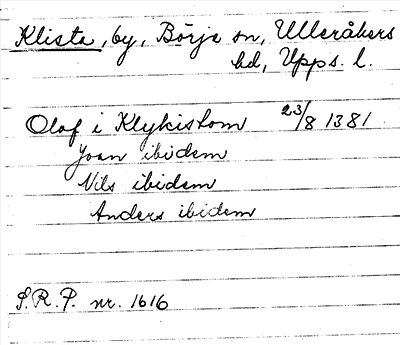 Klista, by, Börje sn, Ulleråkers
hd, Upps. l.
Olof i Klykistom 23/8 1381
Joan ibidem
Nils ibidem
Anders ibidem
S.R.P. nr. 1616